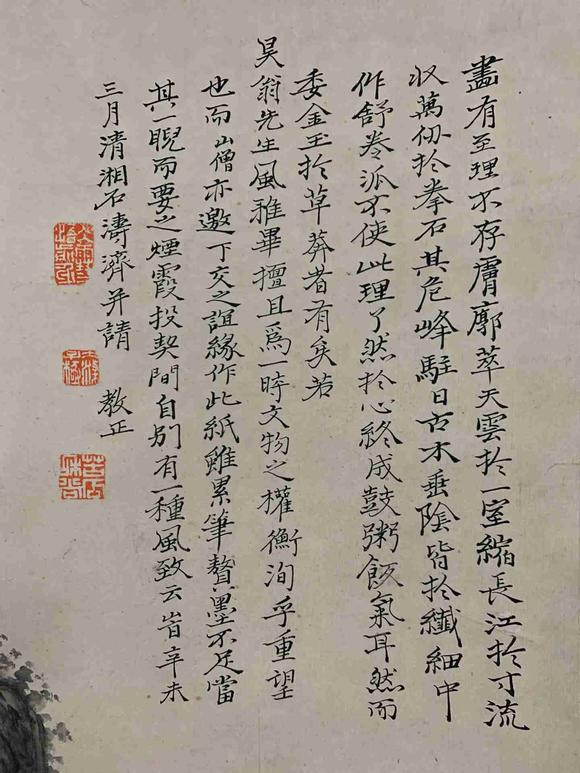 畫有至理不存膚廓萃天雲於一室縮長江於寸流
収萬仞於拳石其危峰駐日古木垂陰皆於纖細中
作舒卷派不使此理了然於心終成鼓粥飯氣耳然而
委金玉於草莽者有矣若
昊翁先生風雅畢擅且為一時文物之權衡洵乎重望
也而山僧亦邀下交之誼緣作此紙雖累筆贅墨不足當
其一睨而要之煙霞投契間自別有一種風致云旹辛未
三月清湘石濤濟并請 教正